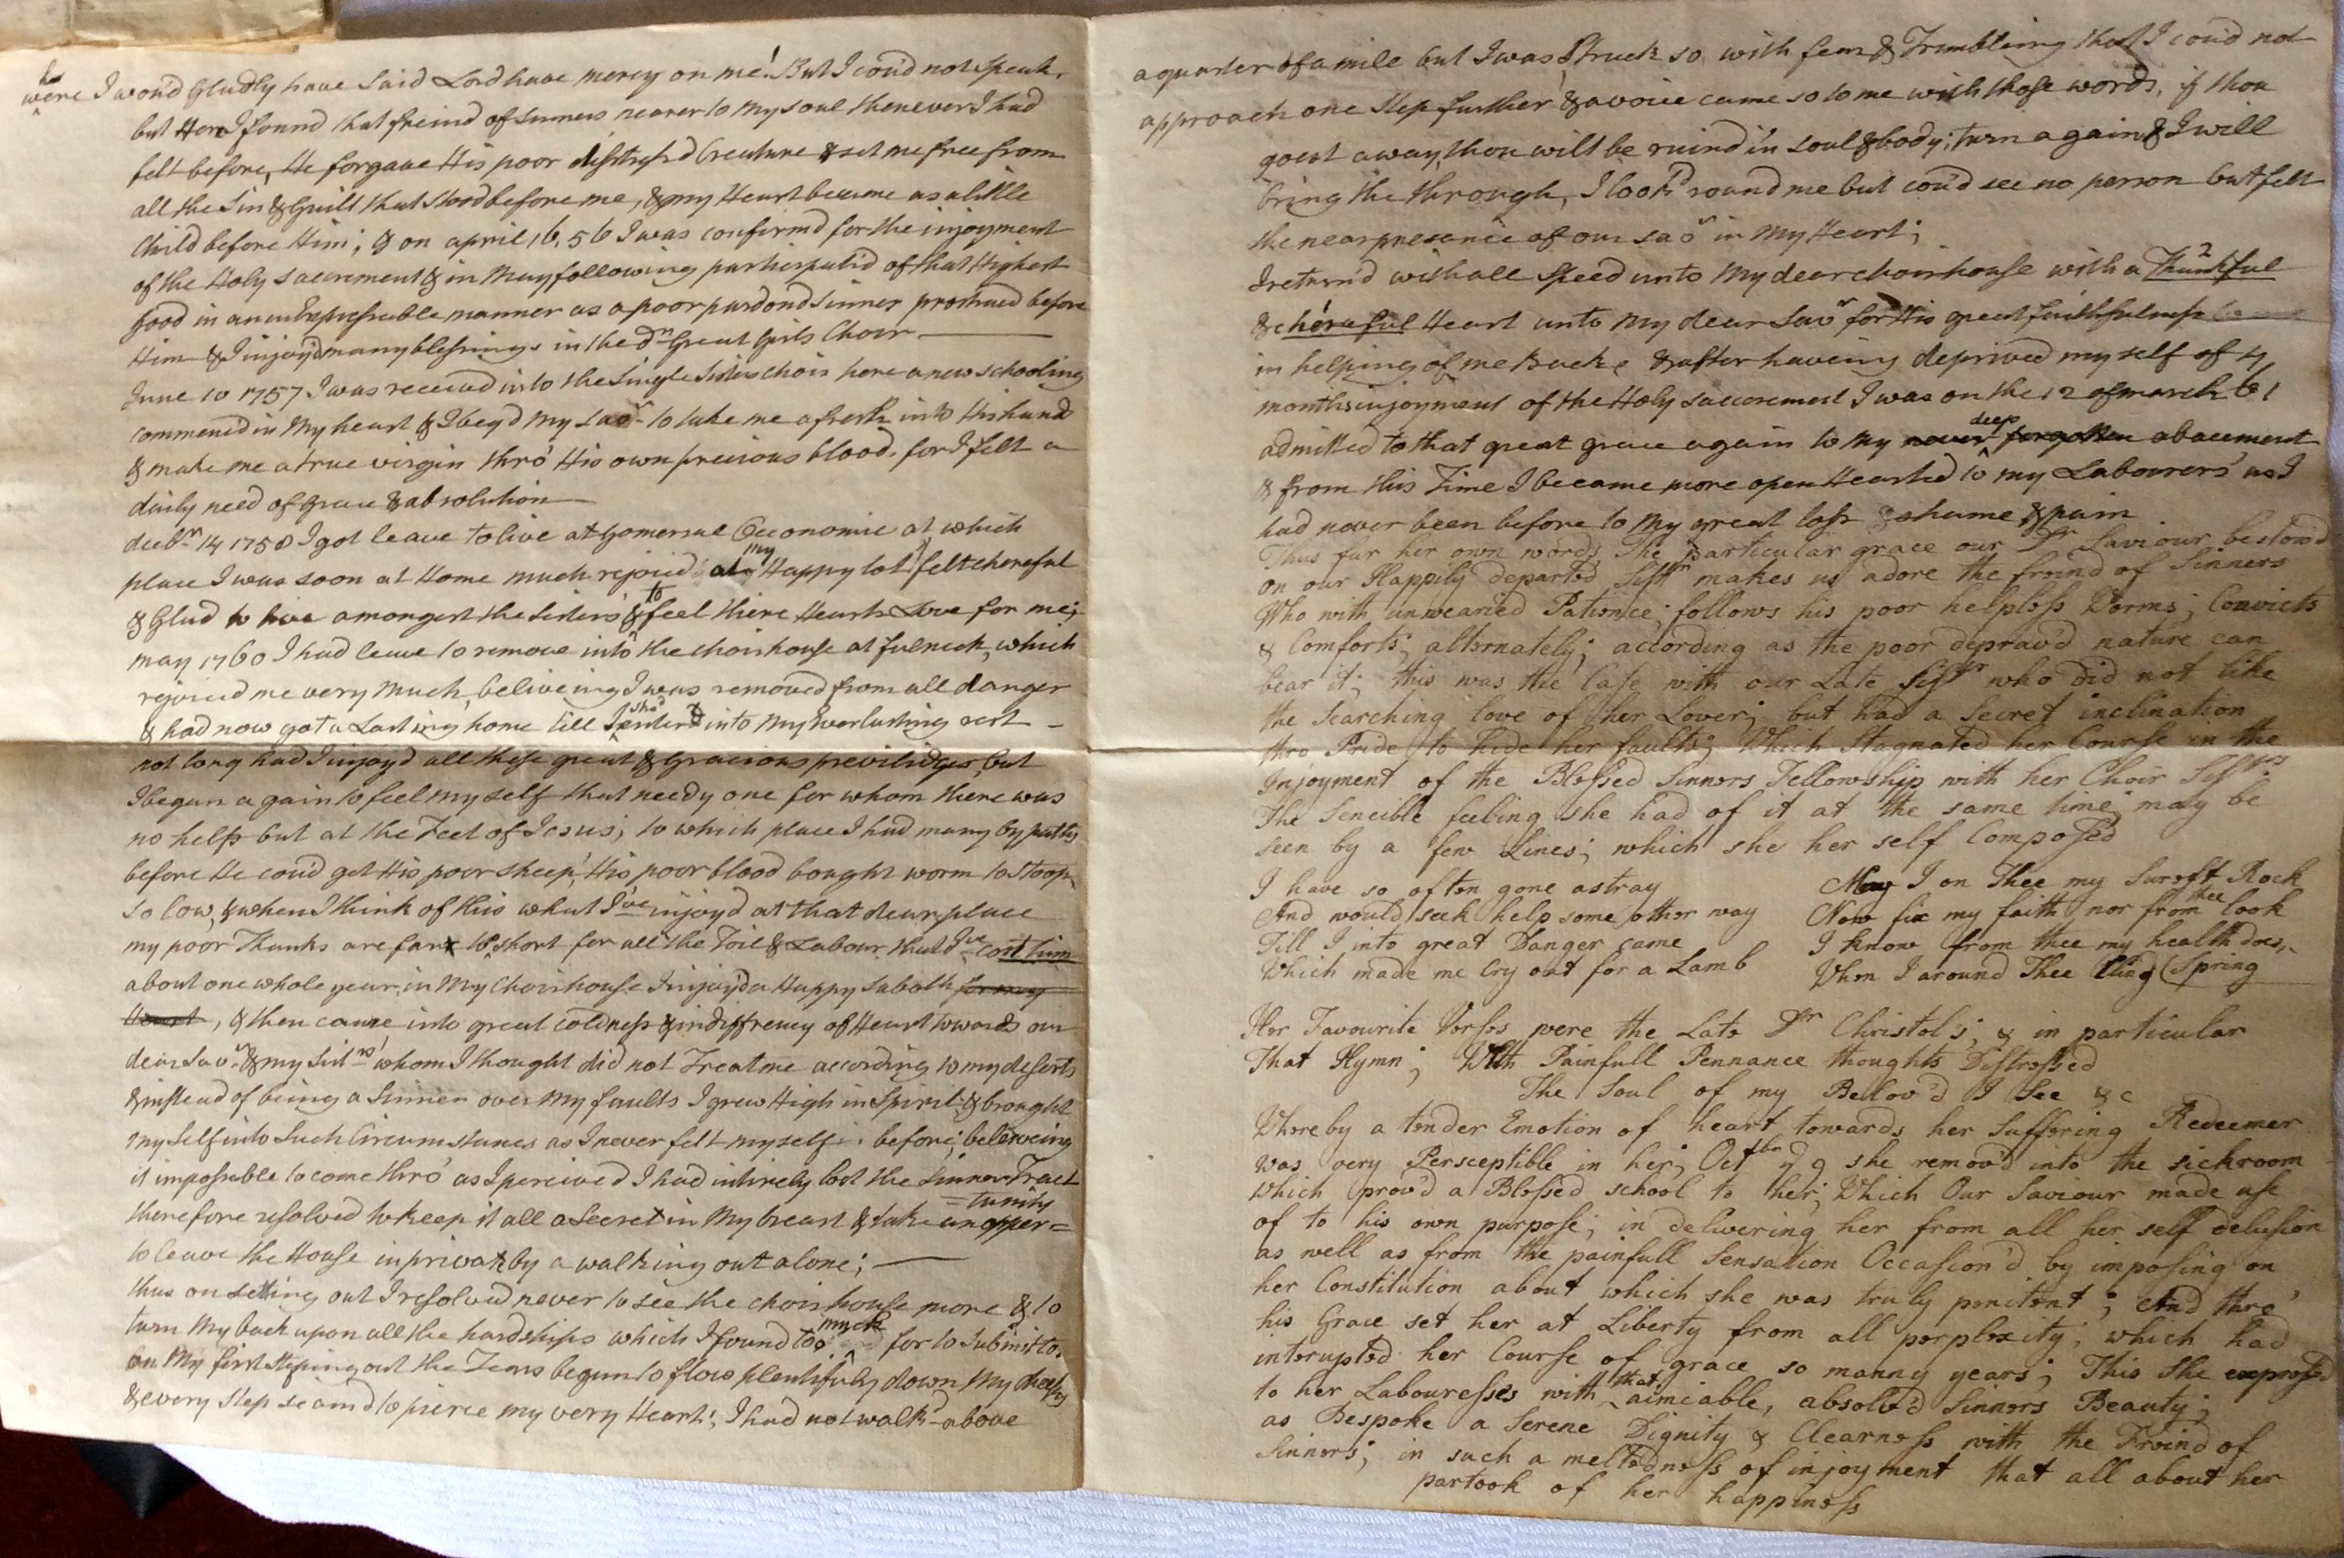 were I wou'd Gladly have said Lord have mercy on me! But I cou'd not speak,
but Here I found that freind of sinners nearer to my soul then ever I had
felt before, He forgave His poor distress'd Creature & set me free from
all the Sin & Guilt that stood before me, & my Heart became as a little
Child before Him; & on april 16, 56 I was confirm'd for the injoyment
of the Holy saccrement & in May following partispatid of that Highest
Good in an inexpressable manner as a poor pardond sinner before
Him & I injoy'd many blessings in the dr Great Girls Choir
June 10 1757 I was receiv'd into the Single Sisters choir here a new schooling
commenc'd in My heart & I beg'd my Savr to take me afresh into His hand
& make me a true virgin thro' His own precious blood, for I felt a
daily need of Grace & absolution
decbr 14 1758 I got leave to live at Gomersal Oeconomie at which
place I was soon at Home much rejoic'd at my Happy lot felt chereful
& Glad to live amongest the sisters & to feel there Hearts Love for me;
may 1760 I had leave to remove into the choirhouse at fulneck, which
rejoiced me very much, beliveing I was removed from all danger
& had now got a Lasting home till I shod enter into My Everlasting rest
not long had I injoy'd all these great & Gracious previlidges, but
I began again to feel my self that needy one for whom there was
no help but at the Feet of Jesus; to which place I had many by paths
before He cou'd get His poor sheep, His poor blood bought worm to stoop
so low, & when I think of this what I've injoy'd at that dear place
my poor Thanks are far to short for all the Toil & Labour that I've cost him
about one whole year, in My Choirhouse I injoy'd a Happy Sabath for my
heart, & then came into great coldness & indiffrency of Heart towards our
dear Savr & my Sistrs whom I thought did not Treat me according to my deserts
& instead of being a Sinner over My faults I grew High in Spirit & brought
my self into such Circumstances as I never felt my self before; beleiveing
it impossable to come thro' as I perceived I had intirely lost the sinner Tract
therefore resolved to keep it all a Secret in My breast & take an opper=
=tunity
to leave the House in private by a walking out alone;
thus on setting out I resolved never to see the choirhouse more & to
turn My back upon all the hardships which I found too much for to submit to.
on My first steping out the Tears began to flow plentifully down My cheeks
& every step seam'd to pierce my very Heart; I had not walk'd above
a quarter of a mile but I was Struck so with fear & Trimbleing that I cou'd not
approach one step further & a voice came so to me with those words, if thou
goest away, thou wilt be ruin'd in soul & body; turn again & I will
bring the through, I look'd round me but cou'd see no person but felt
the near presance of our Savr in My Heart;
I return'd with all Speed unto My dear choirhouse with a Thankful
& chereful Heart unto My dear Savr for His great faithfulness
in helping of me Back, & after haveing deprived my self of 4
months injoyment of the Holy saccrement I was on the 12 of march 61
admitted to that great grace again to My deep never forgotten abacement
& from this Time I became more open Hearted to my Labourers as I
had never been before to My great loss shame & pain
Thus far her own words, The particular grace our Dr Saviour bestow'd
on our Happily departed Sistr makes us adore the freind of Sinners
Who with unwearied Patience; follows his poor helpless Worms; Convicts
& Comforts; alternately; according as the poor deprav'd nature can
bear it; this was the Case with our Late Sistr who did not like
the Searching love of her Lover; but had a Secret inclination
thro Pride to hide her faults; Which Stagnated her Course in the
Injoyment of the Blessed Sinners Fellowship with her Choir Sistrs
The Sencible feeling she had of it at the same time; may be
seen by a few Lines; which she her self Composed
I have so often gone astray
And would seek help some other way
Till I into great Danger came
Which made me Cry out for a Lamb
May I on Thee my Surest Rock
Now fix my faith nor from thee look
I know from thee my health does,
When I around Thee Cling (Spring
Her Favourite Verses were the Late Dr Christels; & in particular
That Hymn; With Painfull Pennance thoughts Distressed
The Soul of my Belov'd I See &c
Whereby a tender Emotion of heart towards her Suffering Redeemer
was very Persceptible in her; Octbr ye 9 she remov'd into the sickroom
which prov'd a Blessed school to her; Which Our Saviour made use
of to his own purpose; in delivering her from all her self delusion
as well as from the painfull Sensation Occasion'd by imposing on
her Constitution about which she was truly penitent; And thro'
his Grace set her at Liberty from all perplexity; which had
interupted her Course of grace so manny years; This she expressed
to her Labouresses with that aimiable, absolv'd Sinners Beauty;
as Bespoke a Serene Dignity & Clearness with the Freind of
Sinners; in such a meltedness of injoyment that all about her
partook of her happiness